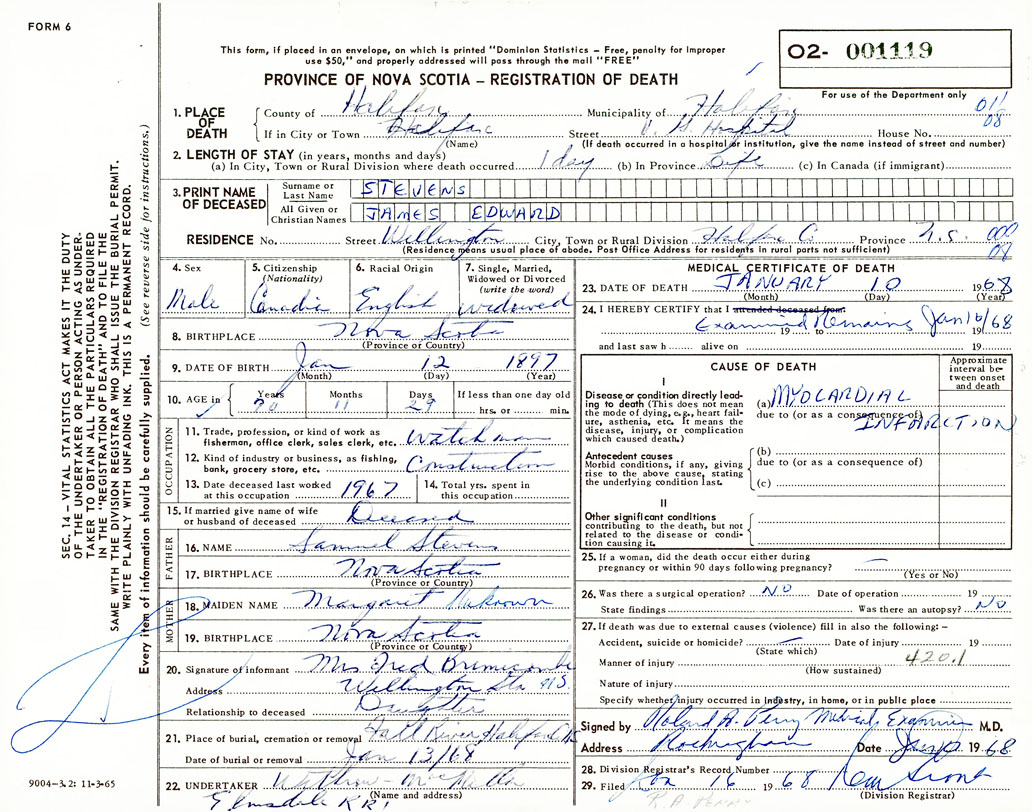 FORM 6
This form, if placed in an envelope, on which is printed "Dominion Statistics – Free, penalty for improper
use $50," and properly addressed will pass through the mail "FREE"
O2- 001119
For use of the Department only
PROVINCE OF NOVA SCOTIA – REGISTRATION OF DEATH
011
08
1. PLACE OF DEATH
County of Halifax Municipality of Halifax
If in City or Town Halifax Street V. G. Hospital House No.
(Name) (If death occurred in a hospital or institution, give the name instead of street and number)
2. LENGTH OF STAY (in years, months and days)
(a) In City, Town or Rural Division where death occurred 1 day (b) In Province Life (c) In Canada (if immigrant)
3. PRINT NAME OF DECEASED
Surname or Last Name STEVENS
All Given or Christian Names JAMES EDWARD
RESIDENCE No. Street Wellington City, Town or Rural Division Halifax C. Province N.S. 000
08
(Residence means usual place of abode. Post Office Address for residents in rural parts not sufficient)
4. Sex Male
5. Citizenship (Nationality) Canadia
6. Racial Origin English
7. Single, Married, Widowed or Divorced (write the word) Widowed
8. BIRTHPLACE Nova Scotia
(Province or Country)
9. DATE OF BIRTH Jan 12 1897
(Month) (Day) (Year)
10. AGE in Years 70 Months 11 Days 29 If less than one day old hrs. or min.
OCCUPATION
11. Trade, profession or kind of work as fisherman, office clerk, sales clerk, etc. Watchman
12. Kind of industry or business, as fishing, bank, grocery store, etc. Construction
13. Date deceased last worked at this occupation 1967 14. Total yrs. spent in this occupation
15. If married give name of wife or husband of deceased Deceased
FATHER
16. NAME Samuel Stevens
17. BIRTHPLACE Nova Scotia
(Province or Country)
MOTHER
18. MAIDEN NAME Margaret Unknown
19. BIRTHPLACE Nova Scotia
(Province or Country)
20. Signature of informant Mrs. Fred Bremicombe
Address Wellington Sta N.S.
Relationship to deceased Daughter
21. Place of burial, cremation or removal Fall River Halifax
Date of burial or removal Jan 13/68
22. UNDERTAKER
(Name and address)
Elmsdale RR1
MEDICAL CERTIFICATE OF DEATH
23. DATE OF DEATH JANUARY 10 1968
(Month) (Day) (Year)
24. I HEREBY CERTIFY that I attended deceased from:
Examined Remains Jan 10/68
19 to 19
and last saw h alive on 19
CAUSE OF DEATH
Approximate interval between onset and death
I
Disease or condition directly leading to death (This does not mean the mode of dying, e.g., heart failure, asthenia, etc. It means the disease, injury, or complication which caused death.)
(a) MYOCARDIAL
due to (or as a consequence of)
INFARCTION
Antecedent causes
Morbid conditions, if any, giving rise to the above cause, stating the underlying condition last.
(b)
due to (or as a consequence of)
(c)
II
Other significant conditions contributing to the death, but not related to the disease or condition causing it.
25. If a woman, did the death occur either during pregnancy or within 90 days following pregnancy? —
(Yes or No)
26. Was there a surgical operation? NO Date of operation 19
State findings Was there an autopsy? NO
27. If death was due to external causes (violence) fill in also the following: –
Accident, suicide or homicide? — Date of injury 19
(State which)
Manner of injury 420.1
(How sustained)
Nature of injury
Specify whether injury occurred in industry, in home, or in public place
Signed by Roland A. Perry Medical Examiner M.D.
Address Rockingham Date Jan 10 1968
28. Division Registrar's Record Number
29. Filed Jan 16 1968
(Division Registrar)
R.A. PERRY
SEC. 14 – VITAL STATISTICS ACT MAKES IT THE DUTY
OF THE UNDERTAKER OR PERSON ACTING AS UNDER-
TAKER TO OBTAIN ALL THE PARTICULARS REQUIRED
IN THE "REGISTRATION OF DEATH" AND TO FILE THE
SAME WITH THE DIVISION REGISTRAR WHO SHALL ISSUE THE BURIAL PERMIT.
WRITE PLAINLY WITH UNFADING INK. THIS IS A PERMANENT RECORD.
Every item of information should be carefully supplied. (See reverse side for instructions.)
9004-3.2: 11-3-65